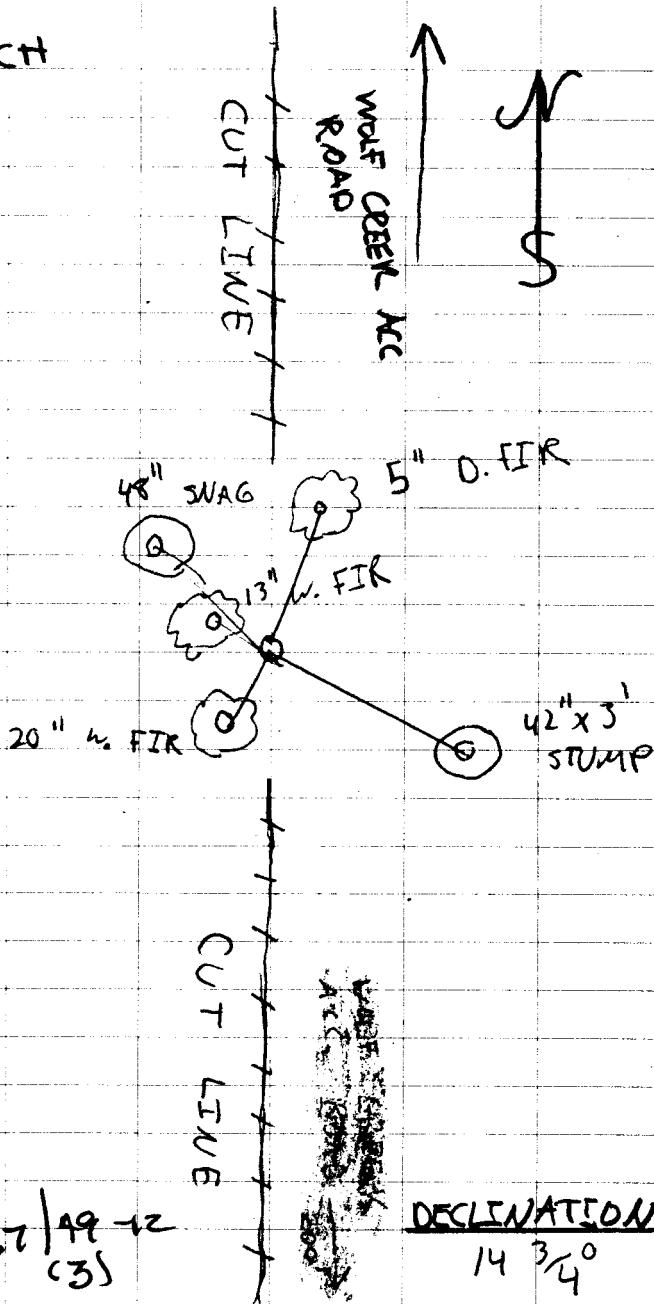 CH
CUT LINE
WOLF CREEK ACC
ROAD
N
S
48" SNAG
5" D. FIR
13" W. FIR
20" W. FIR
42" x 3'
STUMP
CUT LINE
200'
49-12
(3)
DECLINATION
14 3/4°